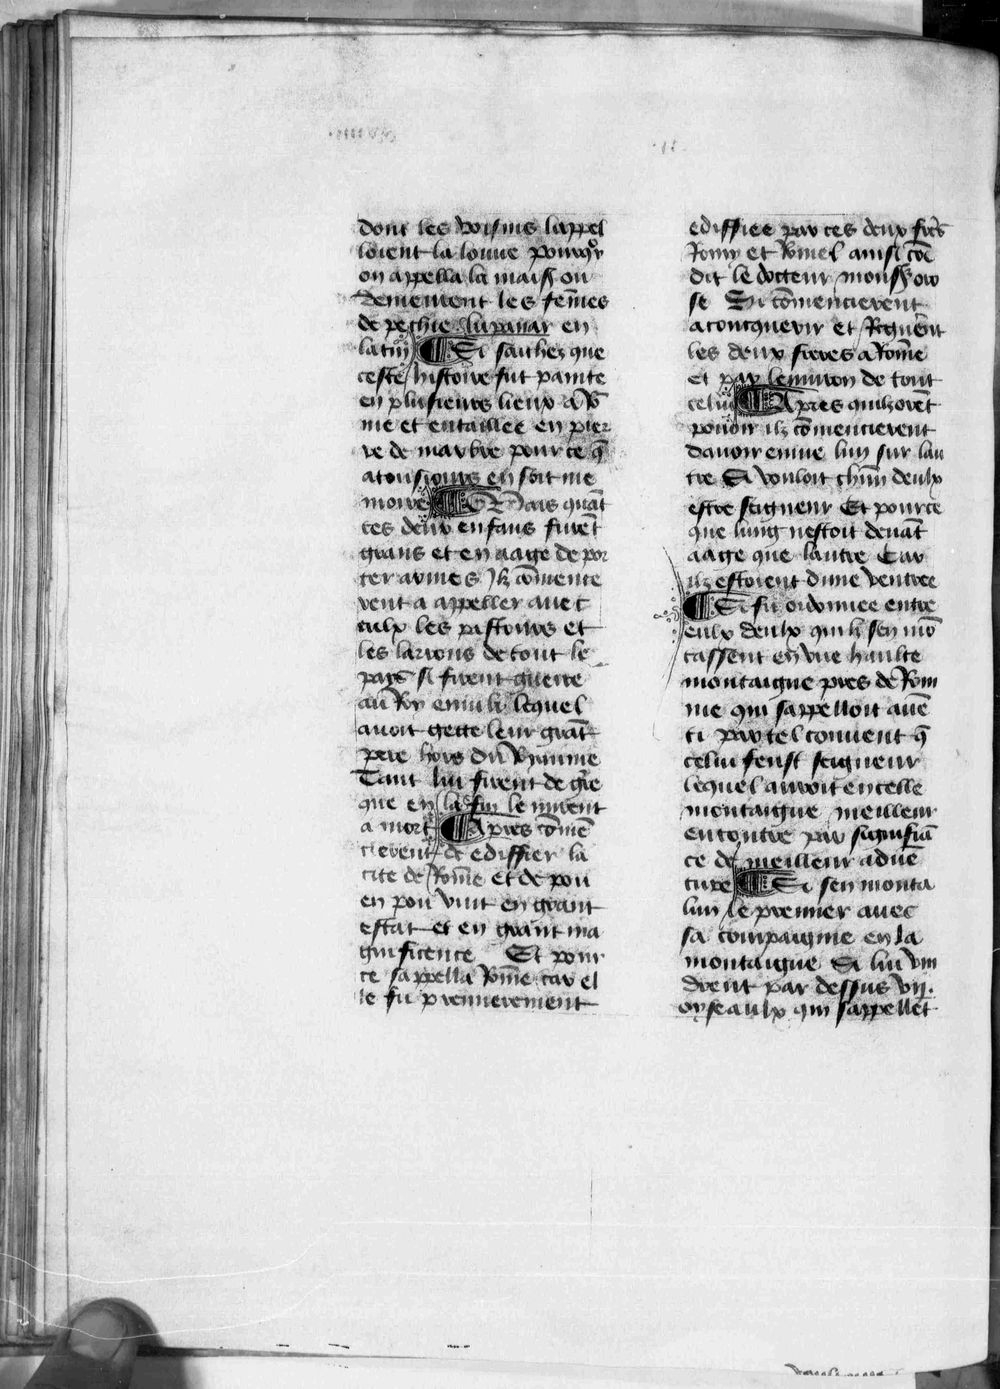 dont les voisins lappel
loient la louue pourqͦy
on appella la maisō ou
demeurent les fem̄es
de pechie lupanar en
latin ¶ Si saichez que
ceste histoire fut painte
en plusieurs lieux a Rō
me et entaillee en pier
re de marbre pour ce q̄
a tousiours en soit me
moire ¶ Mais quāt
ces deux enfans furēt
grans et en aage de por
ter armes Ilz cōmence
rent a appeller auec
eulx les pastours et
les larrons de tout le
pays si firent guerre
au Roy emulx lequel
auoit gette leur grāt
pere hors du Royaume
Tant lui firent de gr̄e
que en la fin le mirent
a mort ¶ Apres cōmē
cierent de ediffier la
cite de Rōme et de pou
en pou vint en grant
estat et en grant ma
gnificence Et pour
ce sappella Rōme car el
le fu premierement
ediffiee par ces deux fr̄es
Romy et Romel ainsi cōe
dit le docteur monsʳ oro
se Si cōmencierent
a conquerir et Regnerēt
les deux freres a Rōme
et par lenuiron de tout
celui ¶ Apres quilz orēt
pouoir ilz cōmencierent
dauoir enuie lun sur lau
tre Si vouloit chūn deulx
estre seigneur Et pource
que lung nestoit deuāt
aage que lautre Car
ilz estoient dune ventree
¶ Si fu ordonnee entre
eulx deulx quilz sen mō
tassent en vne haulte
montaigne pres de Rom
me qui sappelloit auē
ti par tel conuent q̄
celui feust seigneur
lequel auroit en celle
montaigne meilleur
encontre par signifiā
ce de meilleur aduē
ture ¶ Si sen monta
lun le premier auec
sa compaignie en la
montaigne Si lui vin
drent par dessus vij.
oyseaulx qui sappellēt